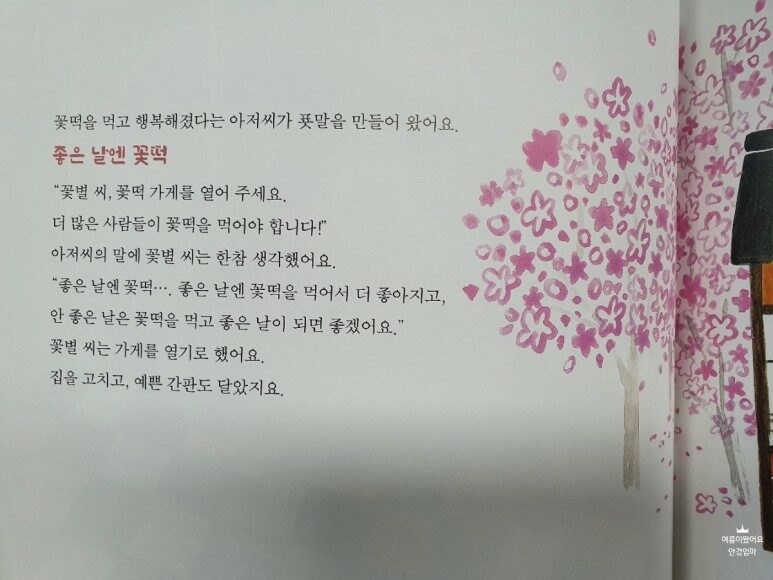 꽃떡을 먹고 행복해졌다는 아저씨가 푯말을 만들어 왔어요.
좋은 날엔 꽃떡
“꽃별 씨, 꽃떡 가게를 열어 주세요.
더 많은 사람들이 꽃떡을 먹어야 합니다!”
아저씨의 말에 꽃별 씨는 한참 생각했어요.
“좋은 날엔 꽃떡…. 좋은 날엔 꽃떡을 먹어서 더 좋아지고,
안 좋은 날은 꽃떡을 먹고 좋은 날이 되면 좋겠어요.”
꽃별 씨는 가게를 열기로 했어요.
집을 고치고, 예쁜 간판도 달았지요.
여름이왔어요
안경엄마